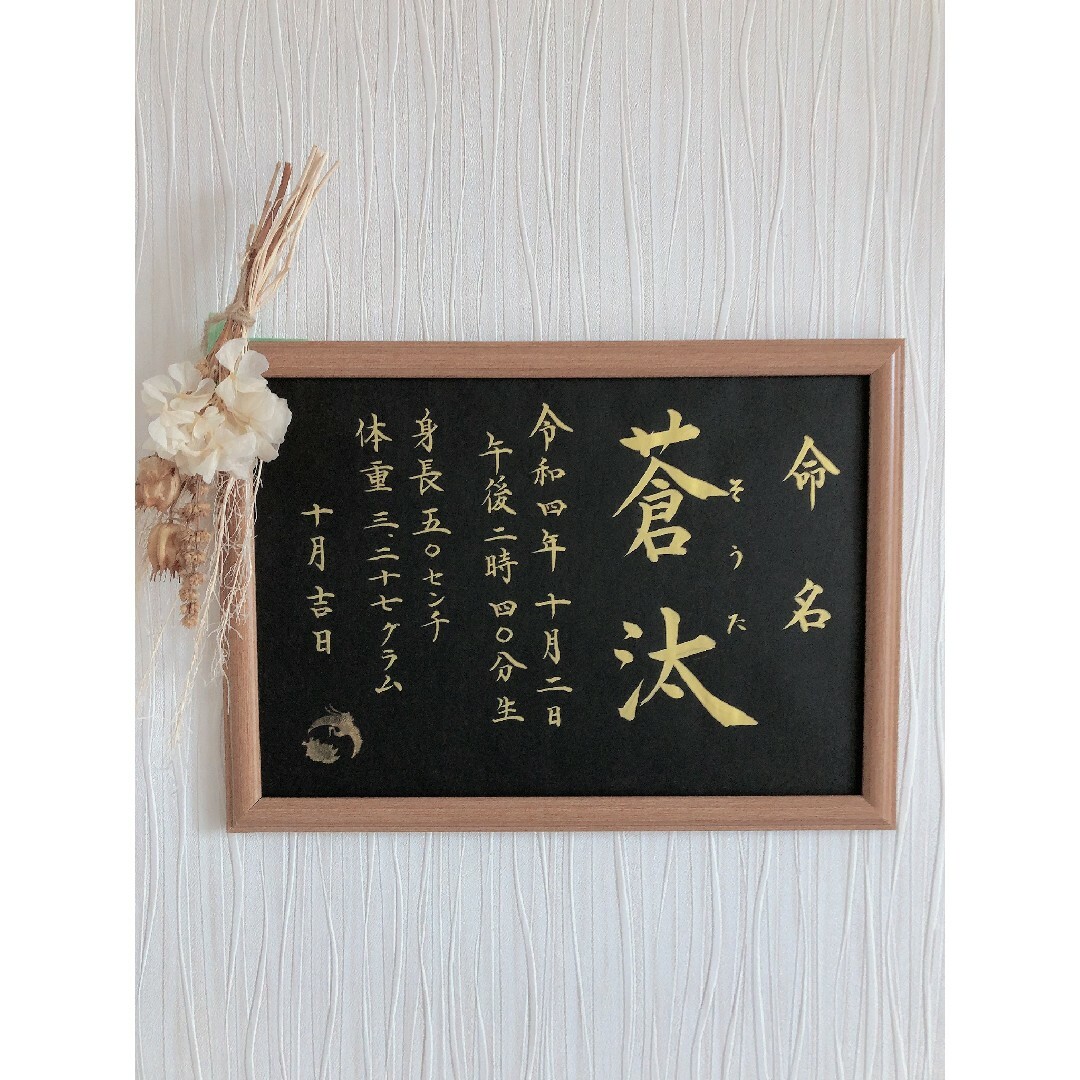 命名
蒼汰
そうた
令和四年十月二日
午後二時四〇分生
身長五〇センチ
体重三、二十七グラム
十月吉日